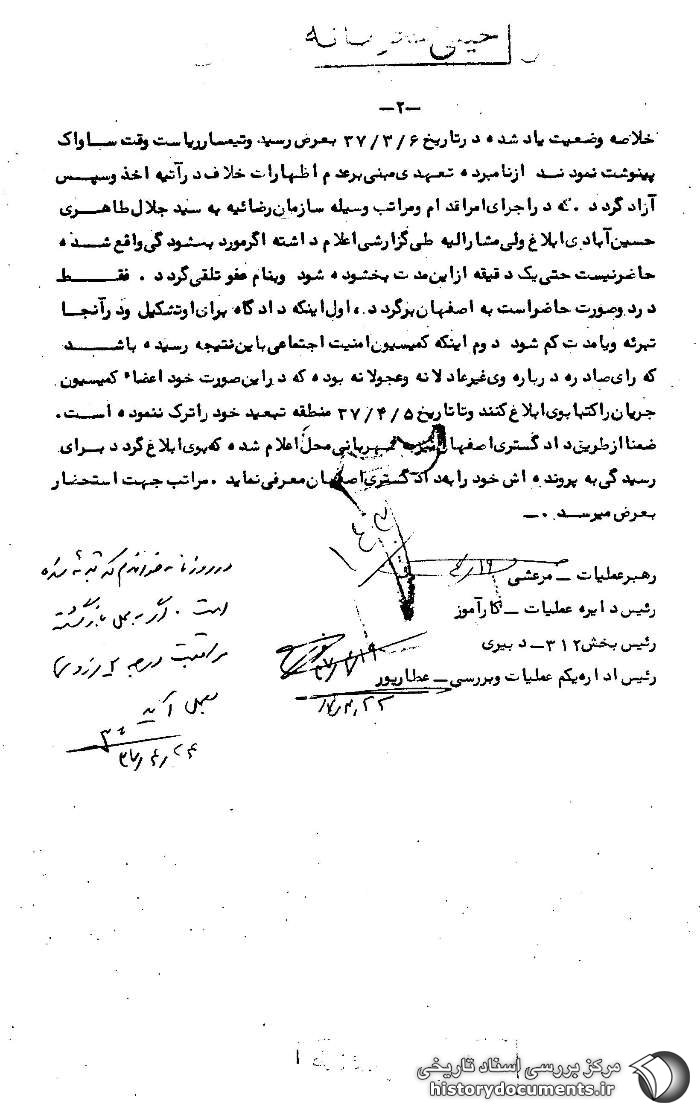 خیلی محرمانه
-۲-
خلاصه وضعیت یاد شده در تاریخ ۳۷/۳/۶ بعرض رسید و تیمسار ریاست وقت ساواک
پینوشت نمودند از نامبرده تعهدی مبنی بر عدم اظهارات خلاف در آتیه اخذ و سپس
آزاد گردد . که در اجرای امر اقدام و مراتب وسیله سازمان رضائیه به سید جلال طاهری
حسین آبادی ابلاغ ولی مشارالیه طی گزارشی اعلام داشته اگر مورد بخشودگی واقع شده
حاضر نیست حتی یک دقیقه از این مدت بخشوده شود و بنام عفو تلقی گردد . فقط
در دو صورت حاضر است به اصفهان برگردد ، اول اینکه دادگاه برای او تشکیل و در آنجا
تبرئه و یا مدت کم شود دوم اینکه کمیسیون امنیت اجتماعی باین نتیجه رسیده باشد
که رای صادره درباره وی غیرعادلانه و عجولانه بوده که در این صورت خود اعضاء کمیسیون
جریان را کتبا بوی ابلاغ کنند و تا تاریخ ۳۷/۴/۵ منطقه تبعید خود را ترک ننموده است .
ضمنا از طریق دادگستری اصفهان بشهربانی محل اعلام شده که بوی ابلاغ گردد برای
رسیدگی به پرونده اش خود را به دادگستری اصفهان معرفی نماید . مراتب جهت استحضار
بعرض میرسد .-
رهبر عملیات - مرعشی
رئیس دایره عملیات - کارآموز
رئیس بخش ۳۱۲ - دبیری
رئیس اداره یکم عملیات و بررسی - عطارپور
در روزنامه خواندم که تبرئه شده
است . اگر به محل بازگشته
مراقبت
بعمل آید
۳۷/۴/۲۴
مرکز بررسی اسناد تاریخی
historydocuments.ir